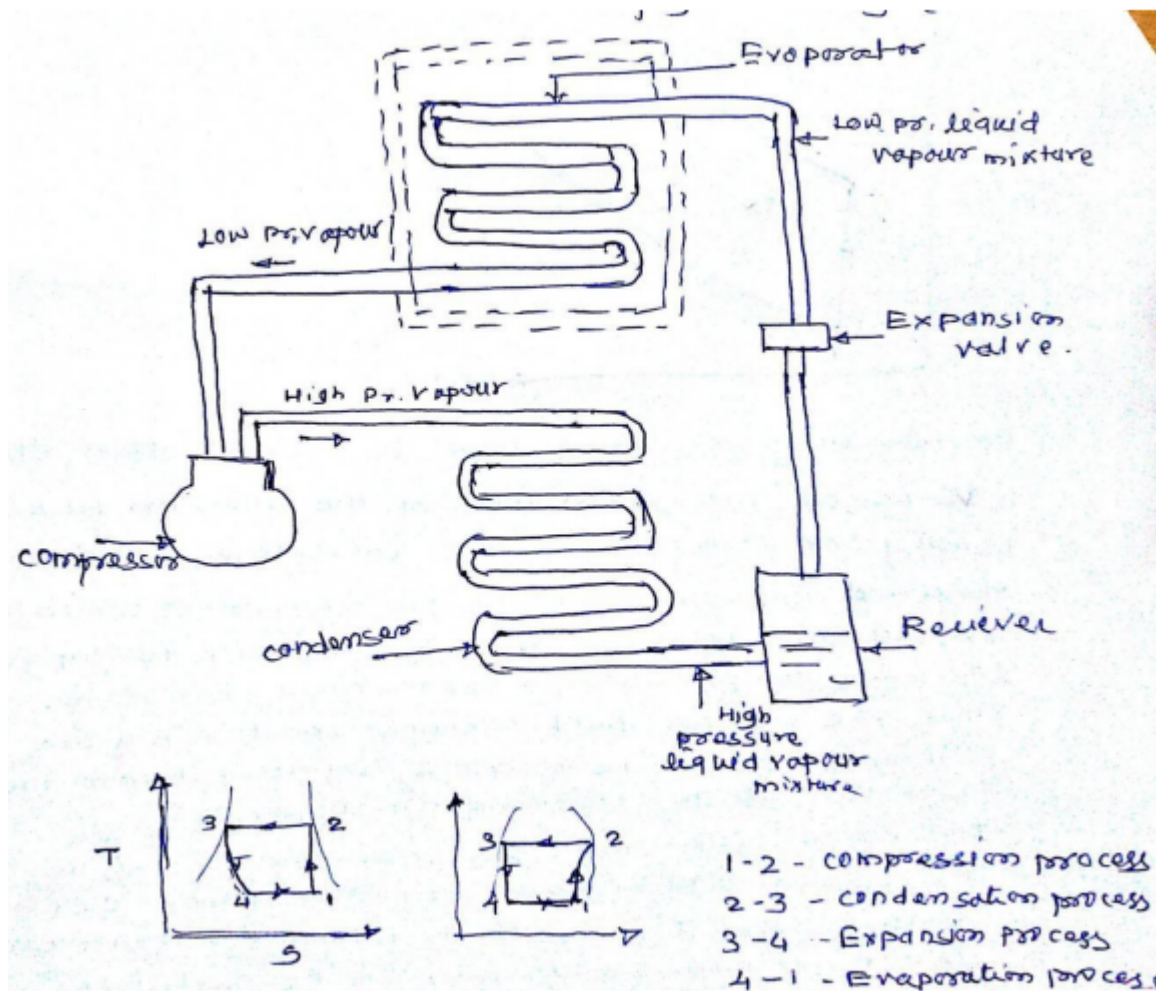 Evaporator
Low pr. liquid
vapour mixture
Low Pr. vapour
Expansion
valve.
High Pr. vapour
compressor
condenser
Reciever
High
pressure
liquid vapour
mixture
3 2
T
4 1
S
3 2
4 1
1-2 - compression process
2-3 - condensation process
3-4 - Expansion process
4-1 - Evaporation process